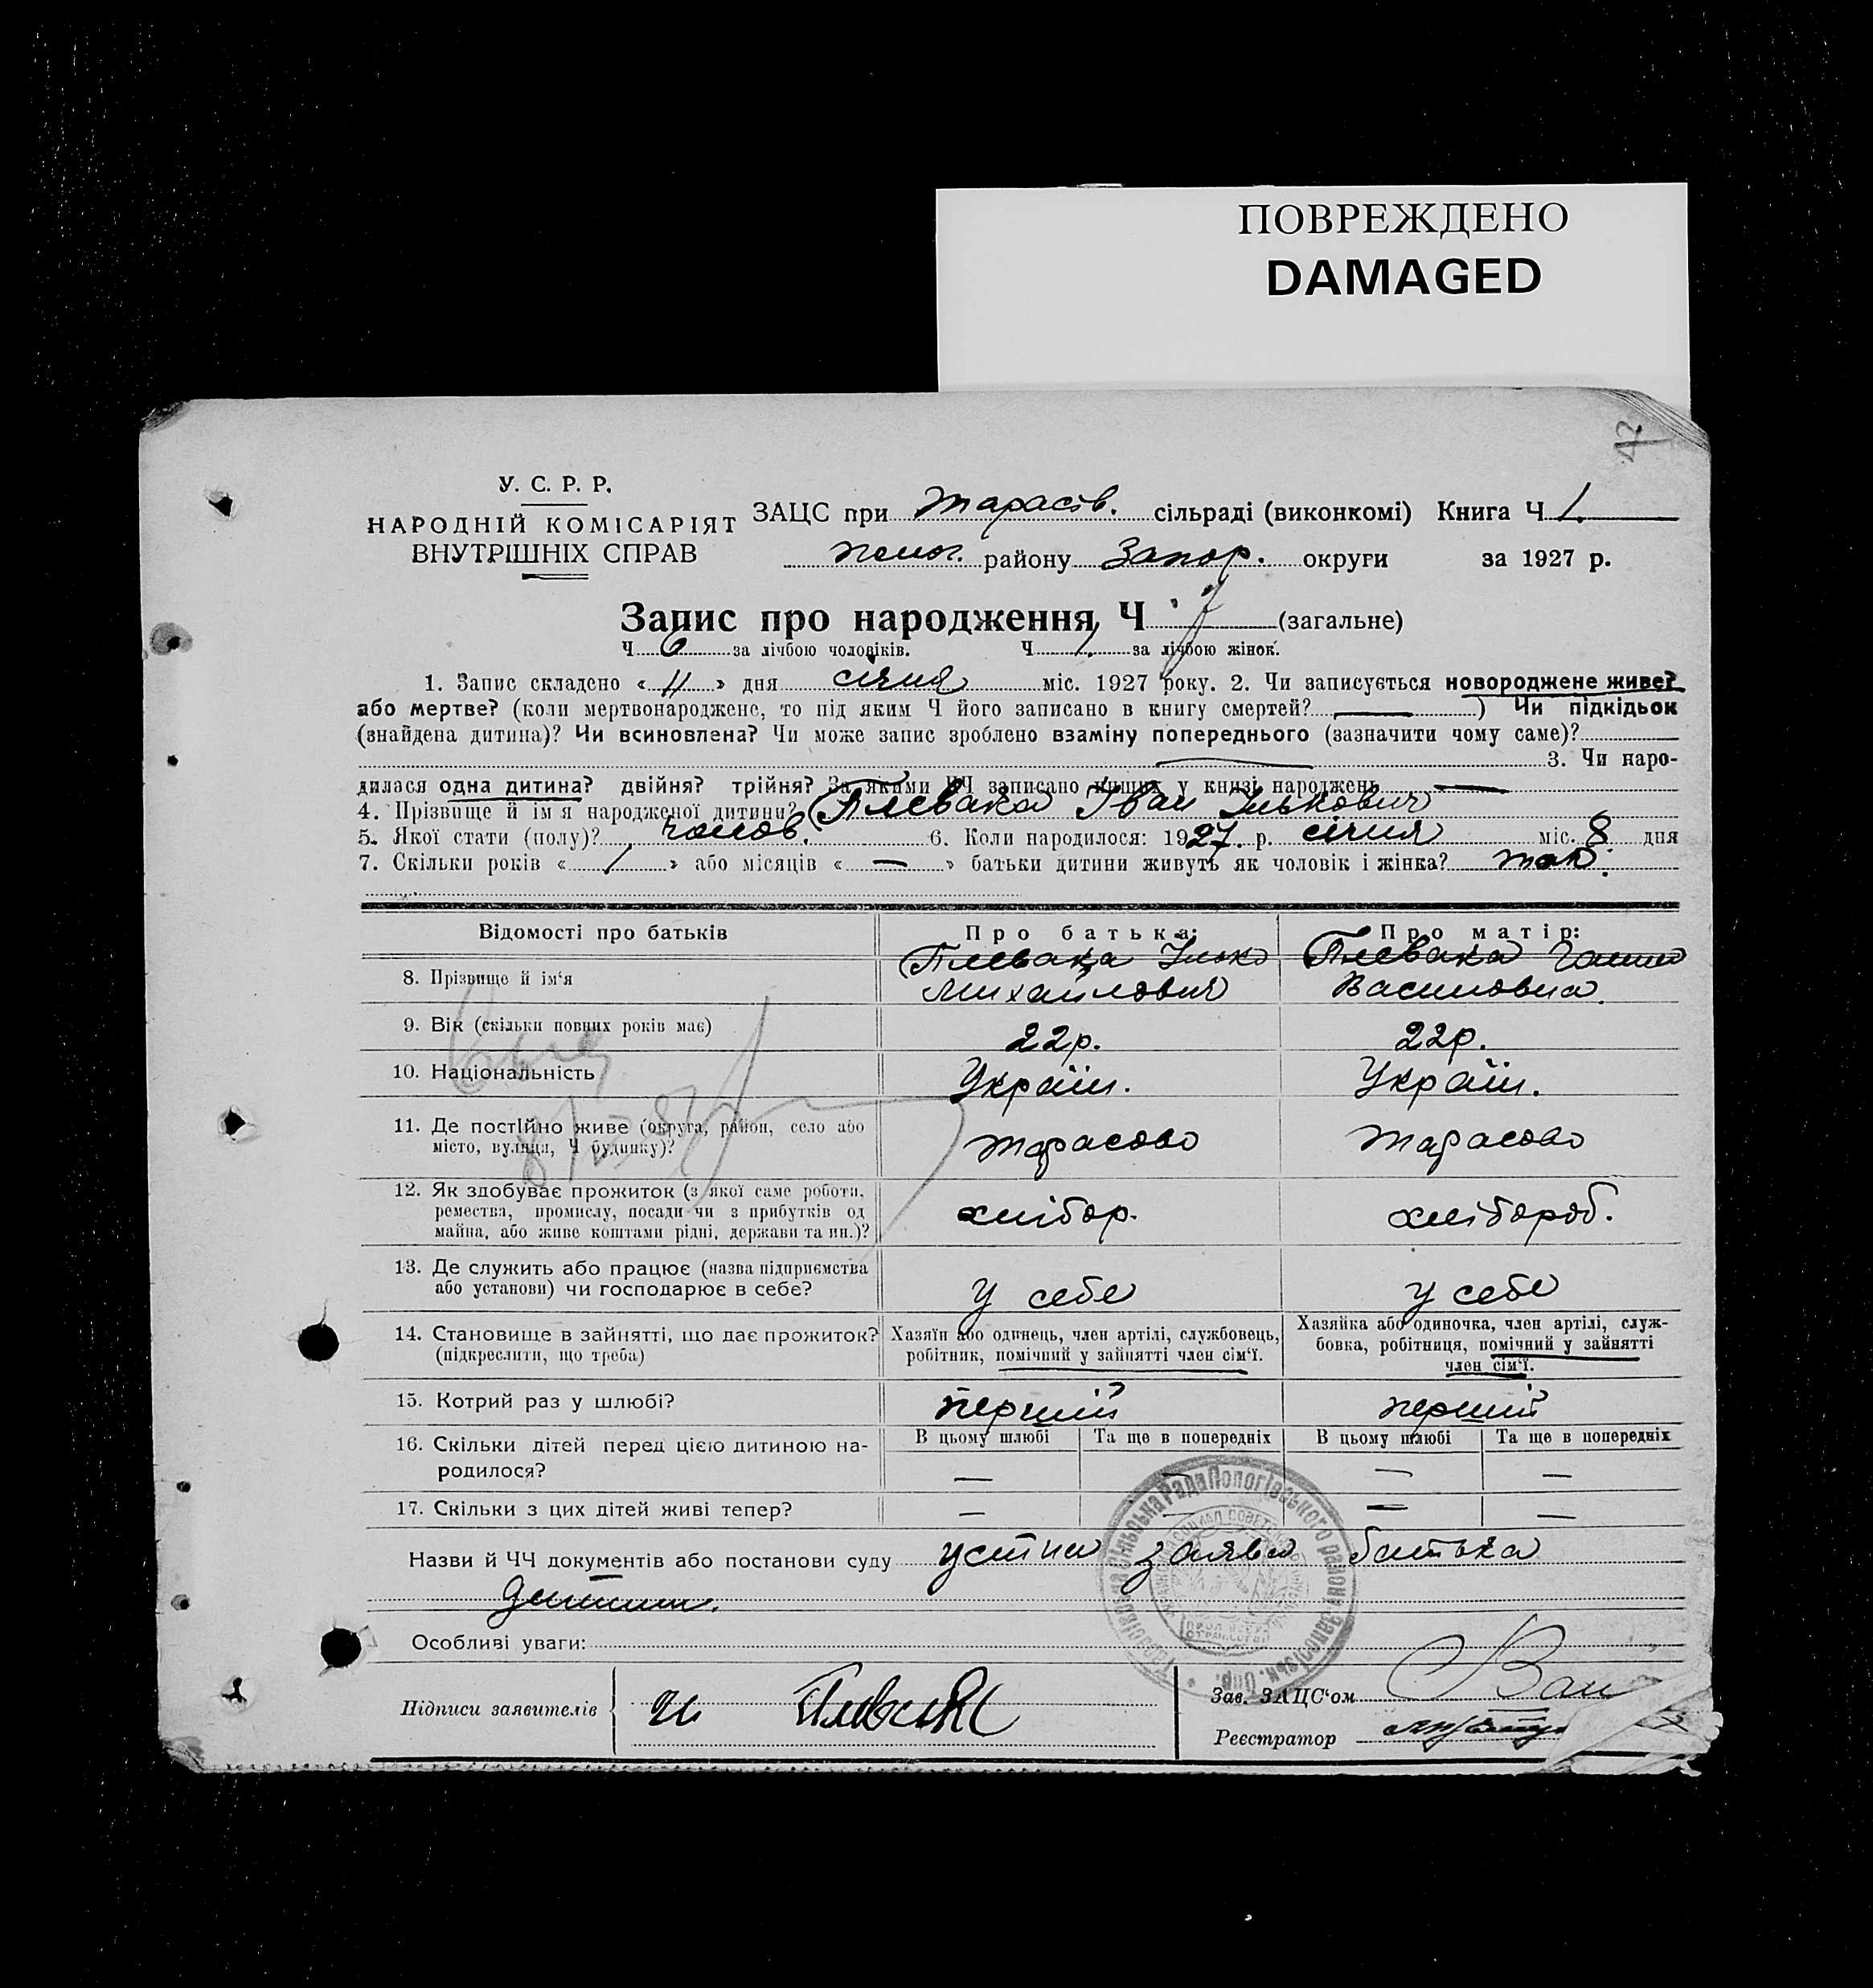 ПОВРЕЖДЕНО
DAMAGED
17
У. С. Р. Р.
НАРОДНІЙ КОМІСАРІЯТ
ВНУТРІШНІХ СПРАВ
ЗАЦС при Тарасів. сільраді (виконкомі) Книга Ч 1.
району Запор. округи за 1927 р.
Запис про народження Ч 7 (загальне)
Ч 6 за лічбою чоловіків. Ч 1. за лічбою жінок.
1. Запис складено « 11 » дня січня міс. 1927 року. 2. Чи записується новороджене живе?
або мертве? (коли мертвонароджене, то під яким Ч його записано в книгу смертей? — ) Чи підкідьок
(знайдена дитина)? Чи всиновлена? Чи може запис зроблено взаміну попереднього (зазначити чому саме)?
— 3. Чи наро-
дилася одна дитина? двійня? трійня? За якими ЧЧ записано инших у книзі народжень —
4. Прізвище й ім'я народженої дитини? Плевака Іван Ількович
5. Якої стати (полу)? чолов. 6. Коли народилося: 1927. р. січня міс. 8 дня
7. Скільки років « 1 » або місяців « — » батьки дитини живуть як чоловік і жінка? так.
Відомості про батьків
Про батька:
Про матір:
8. Прізвище й ім'я
Плевака Ілько
Михайлович
Плевака Ганна
Василовна.
9. Вік (скільки повних років має)
22р.
22р.
10. Національність
Україн.
Україн.
11. Де постійно живе (округа, район, село або
місто, вулиця, Ч будинку)?
Тарасово
Тарасово
12. Як здобуває прожиток (з якої саме роботи,
ремества, промислу, посади чи з прибутків од
майна, або живе коштами рідні, держави та ин.)?
хлібор.
хлібороб.
13. Де служить або працює (назва підприємства
або установи) чи господарює в себе?
у себе
у себе
14. Становище в зайнятті, що дає прожиток?
(підкреслити, що треба)
Хазяїн або одинець, член артілі, службовець,
робітник, помічний у зайнятті член сім'ї.
Хазяйка або одиночка, член артілі, служ-
бовка, робітниця, помічний у зайнятті
член сім'ї.
15. Котрий раз у шлюбі?
перший
перший
16. Скільки дітей перед цією дитиною на-
родилося?
В цьому шлюбі
Та ще в попередніх
В цьому шлюбі
Та ще в попередніх
— — — —
17. Скільки з цих дітей живі тепер?
— — — —
Назви й ЧЧ документів або постанови суду устна заява батька
дитини.
Тарасівська Сільська Рада Пологівського району Запорізьк. Окр.
Особливі уваги:
Підписи заявителів
Плевака
Зав. ЗАЦС'ом
Реєстратор